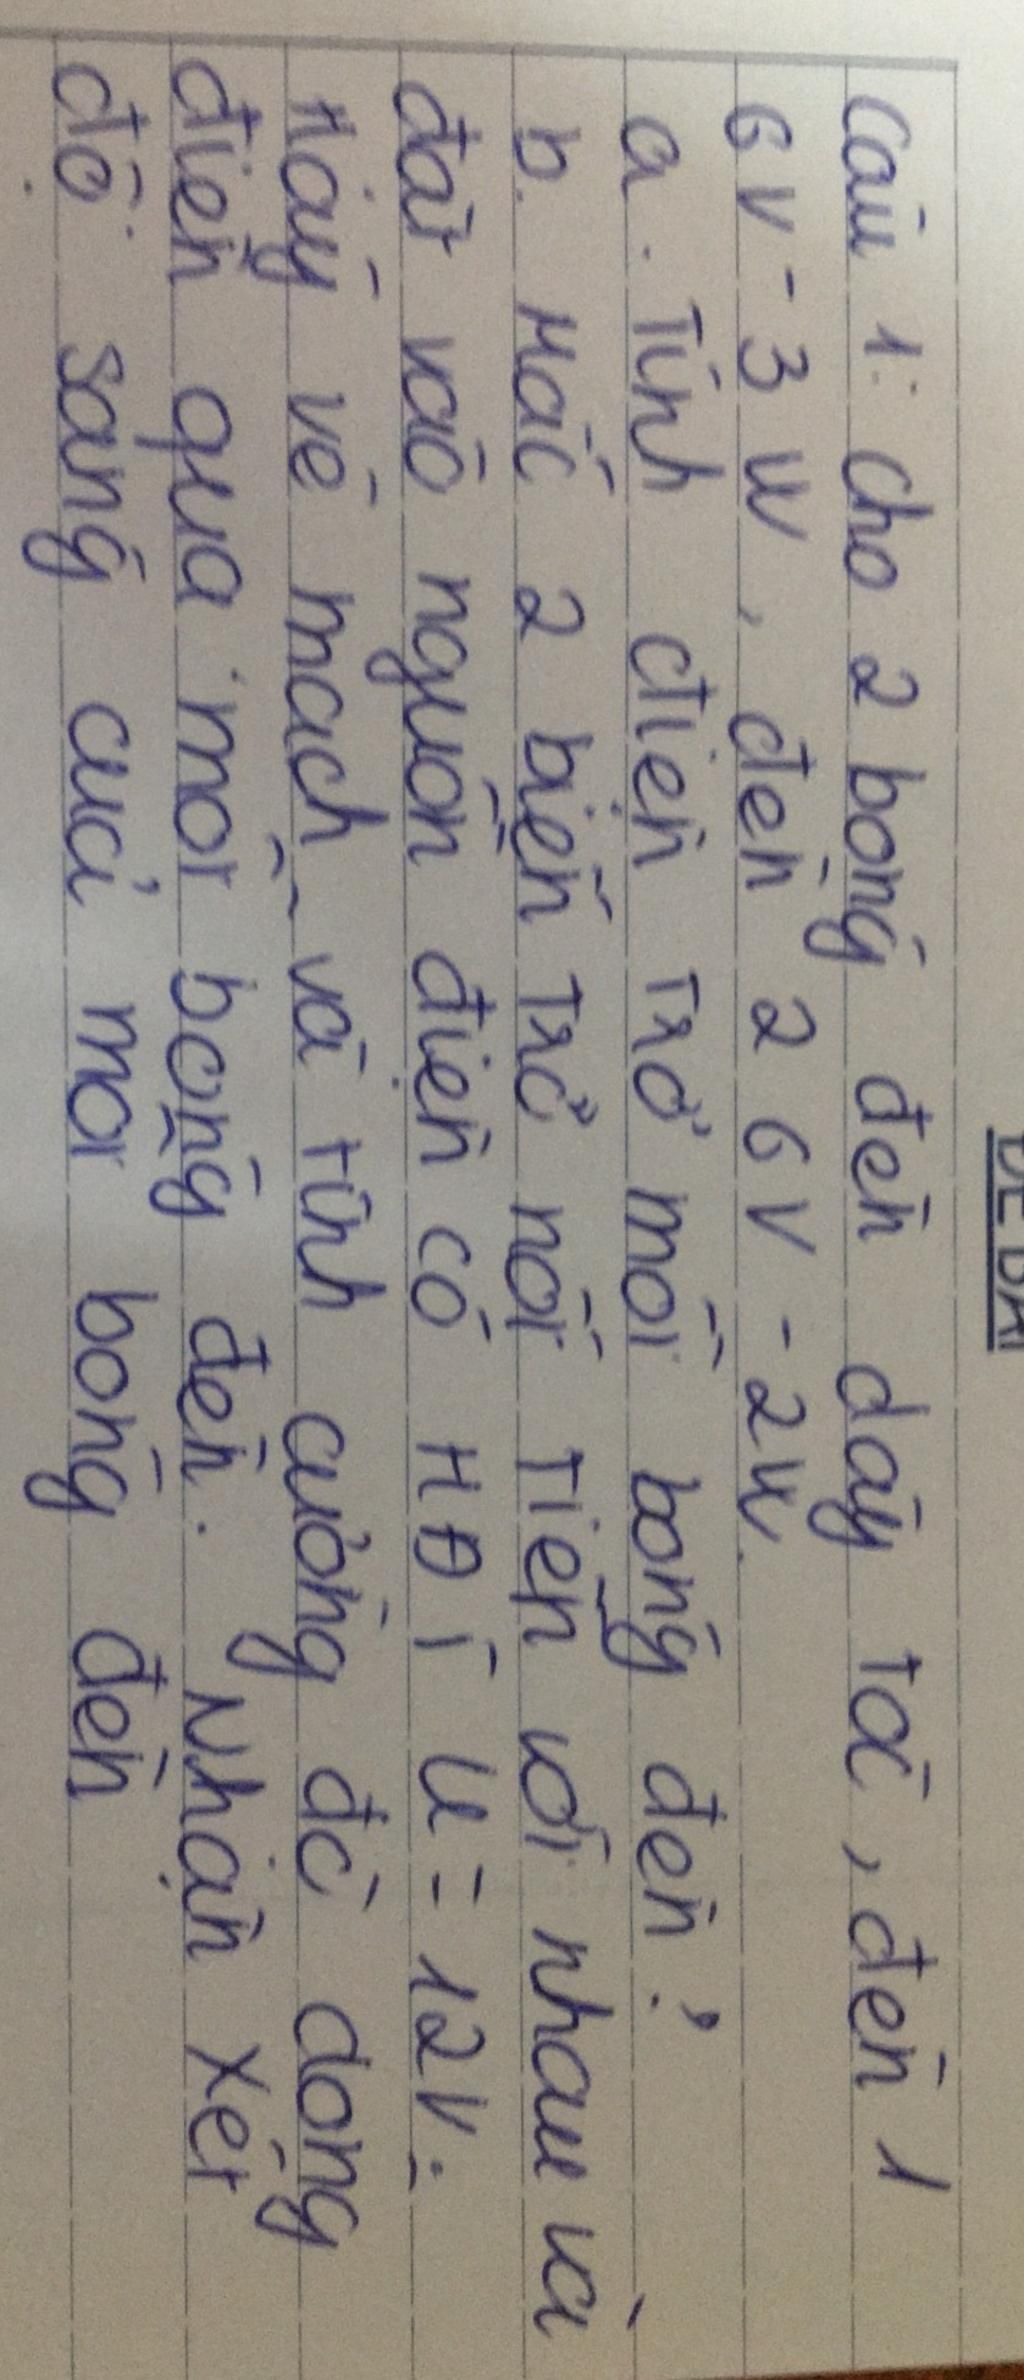 ĐỀ BÀI
Câu 1: cho 2 bóng đèn dây tóc, đèn 1
6V - 3W, đèn 2 6V - 2W.
a. Tính điện trở mỗi bóng đèn?
b. Mắc 2 biến trở nối tiếp với nhau và
đặt vào nguồn điện có HĐT U = 12V.
Hãy vẽ mạch và tính cường độ dòng
điện qua mỗi bóng đèn. Nhận xét
độ sáng của mỗi bóng đèn